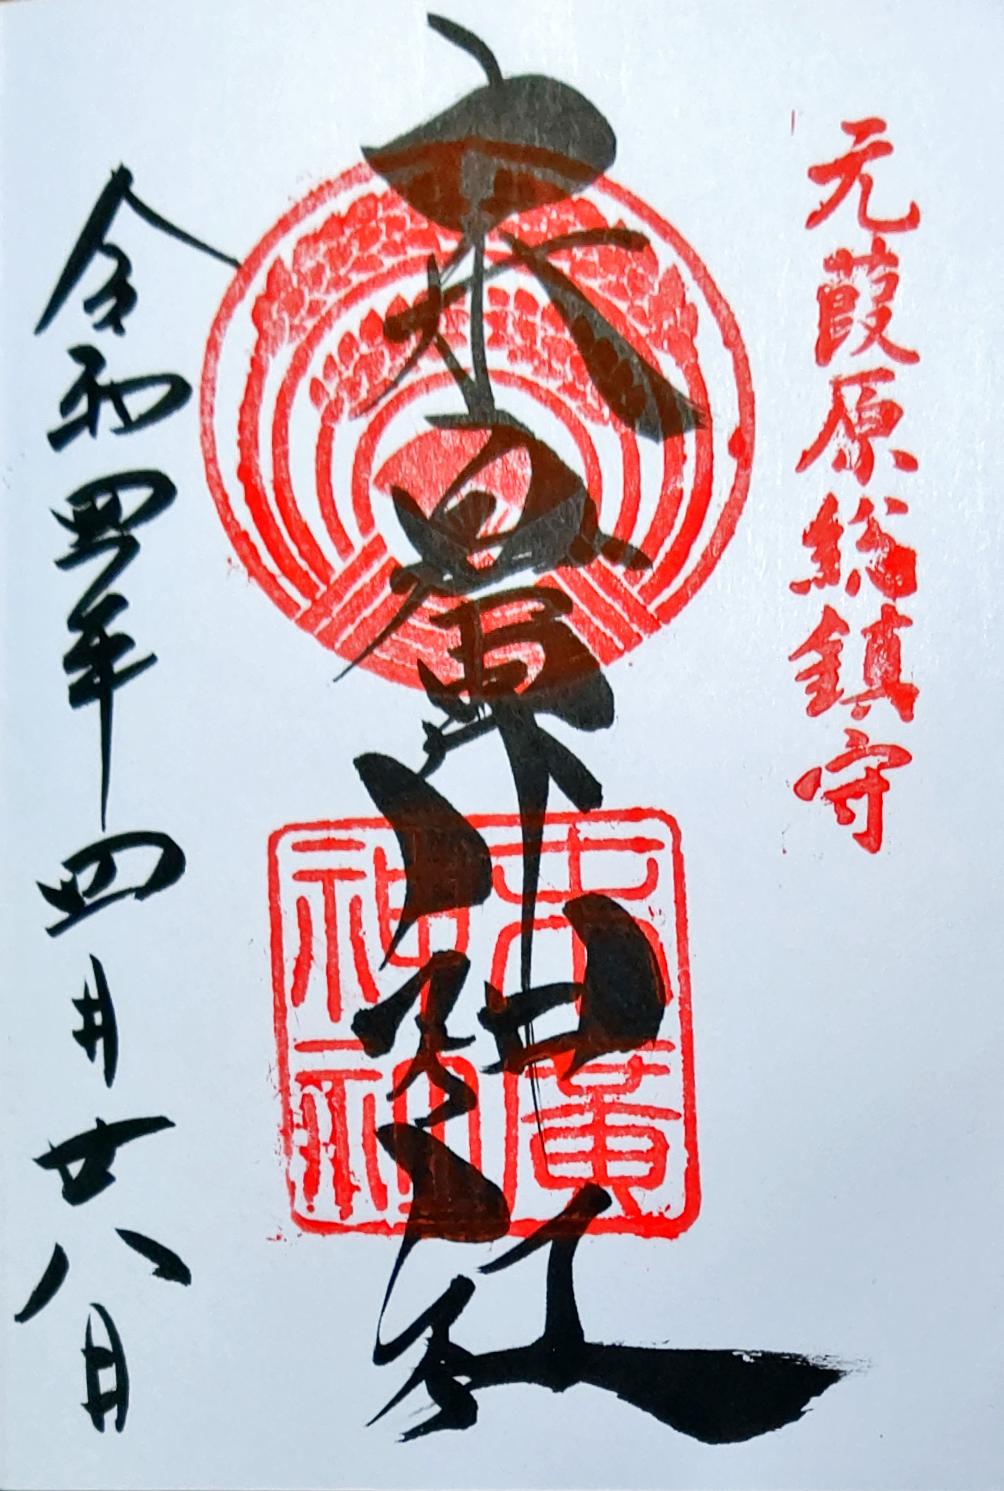 元葭原総鎮守
末廣神社
末廣
神社
令和四年四月廿八日